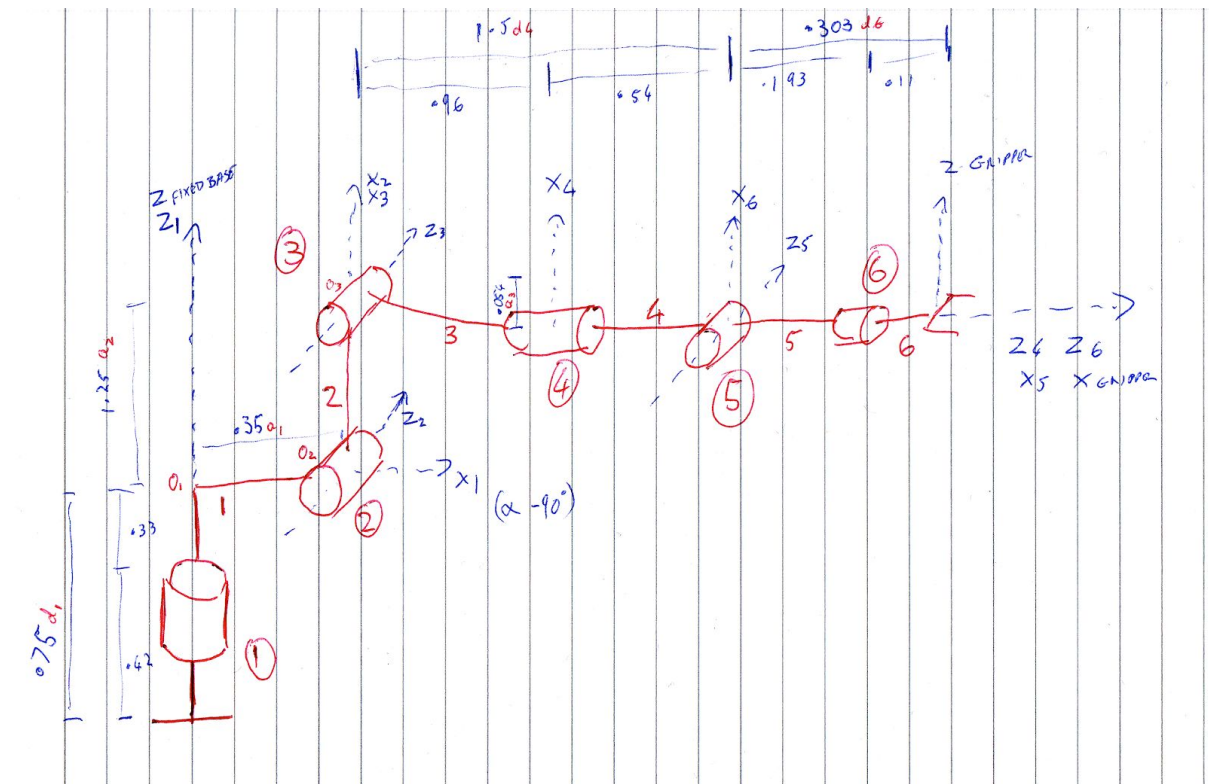 1.5 d4
.303 d6
.96
.54
.193
.11
Z FIXED BASE
Z1
X2
X3
Z3
X4
X6
Z5
Z GRIPPER
3
O3
a3
3
4
4
5
5
6
6
Z4 Z6
X5 X GRIPPER
1.25 a2
2
Z2
.35 a1
O2
O1
X1
(α -90°)
1
2
.33
.75 d1
.42
1